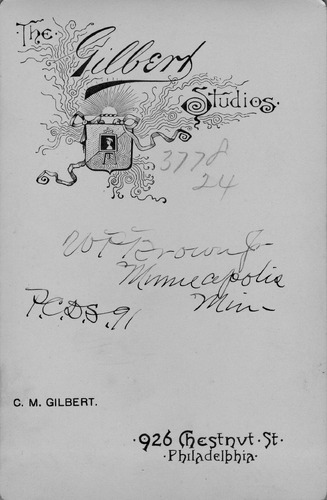 The
Gilbert
Studios.
3778
24
W P Brown Jr
Minneapolis
Min
P.C.D.S. 91
C. M. GILBERT.
·926 Chestnvt·St.
·Philadelphia·